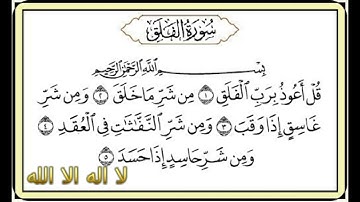 سُورَةُ الْفَلَقِ
بِسْمِ اللَّهِ الرَّحْمَٰنِ الرَّحِيمِ
قُلْ أَعُوذُ بِرَبِّ الْفَلَقِ ١ مِن شَرِّ مَا خَلَقَ ٢ وَمِن شَرِّ
غَاسِقٍ إِذَا وَقَبَ ٣ وَمِن شَرِّ النَّفَّاثَاتِ فِي الْعُقَدِ ٤
وَمِن شَرِّ حَاسِدٍ إِذَا حَسَدَ ٥
لا اله الا الله